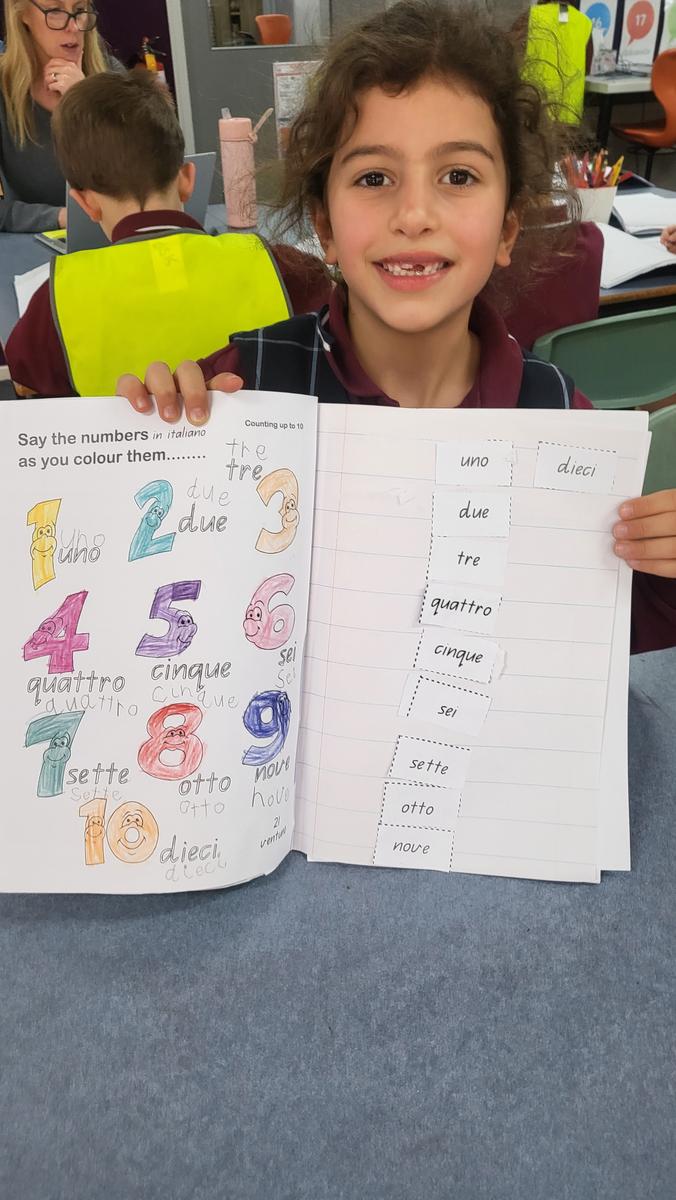 16
17
Say the numbers in italiano
as you colour them........
Counting up to 10
tre
tre
1 uno
uno
2 due
due
3
4
quattro
quattro
5
cinque
cinque
6
sei
sei
7 sette
sette
8
otto
otto
9
nove
nove
10
dieci
dieci
21
uno
dieci
due
tre
quattro
cinque
sei
sette
otto
nove